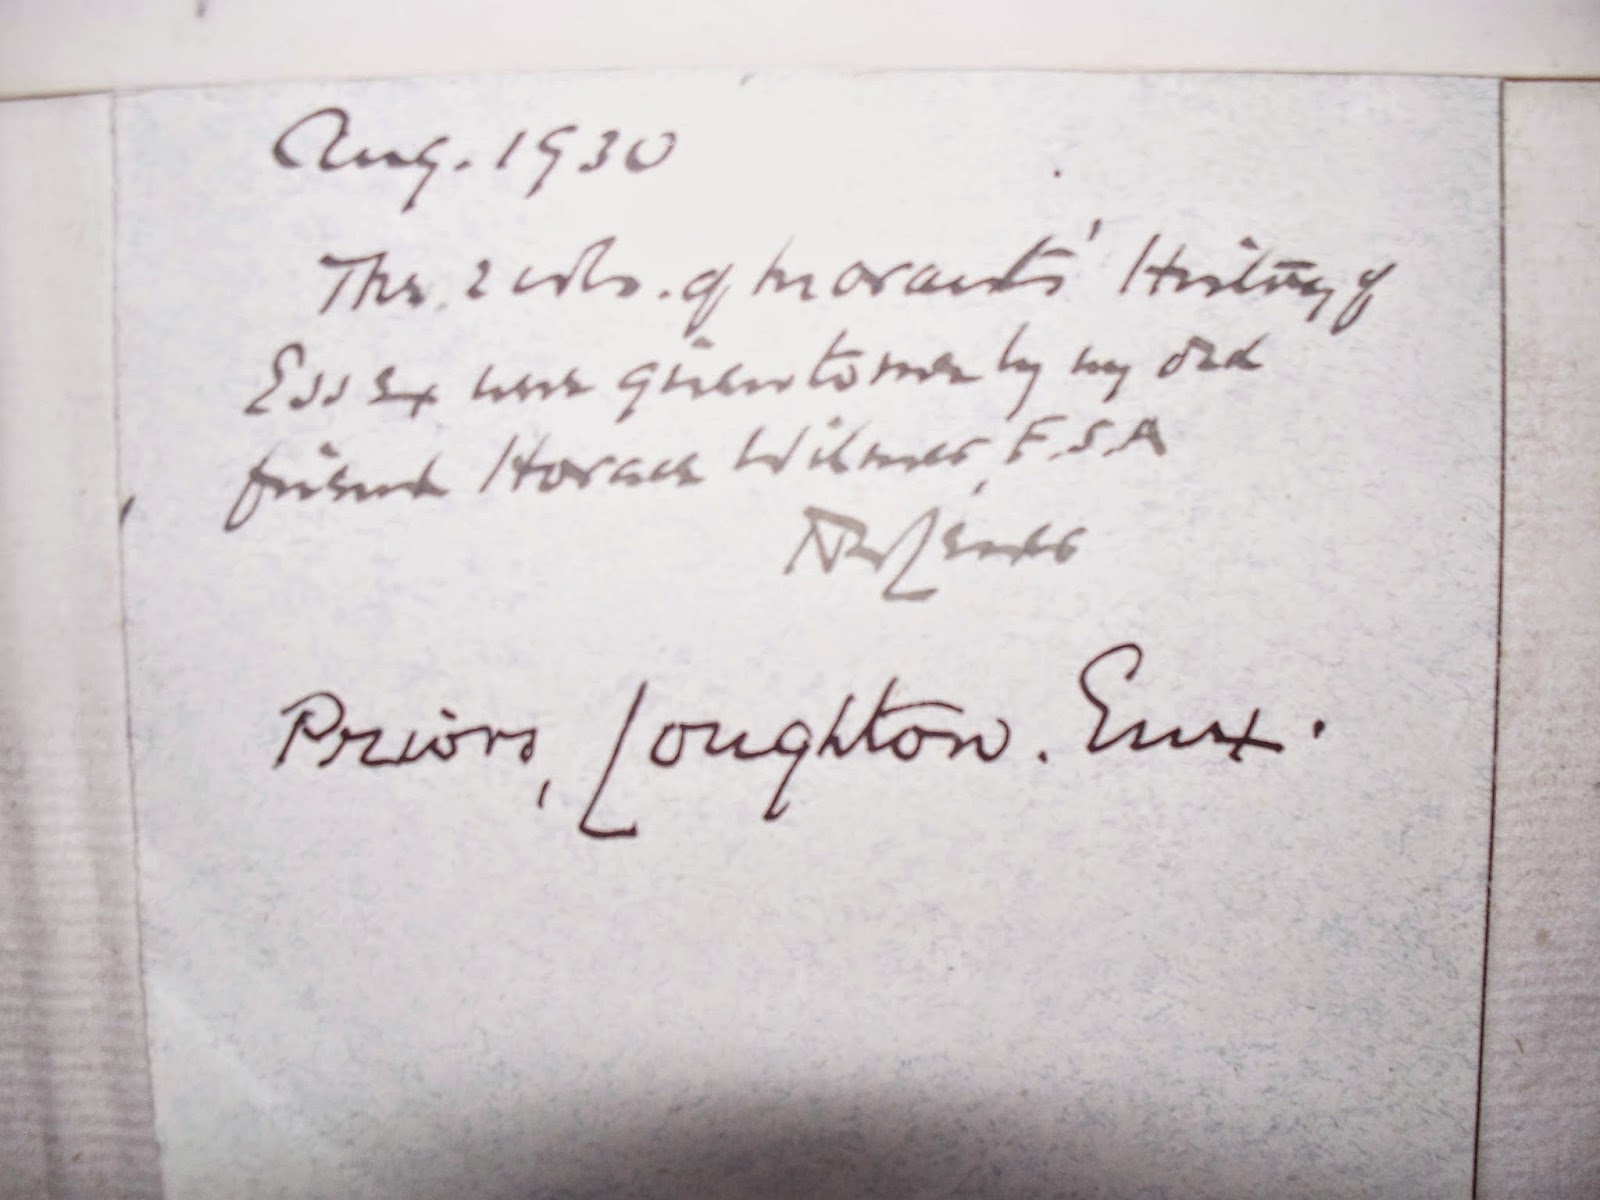 Aug. 1930
The 2 vols. of Morants' History of
Essex were given to me by my old
friend Horace Wilmer, F.S.A
Priors, Loughton. Essex.